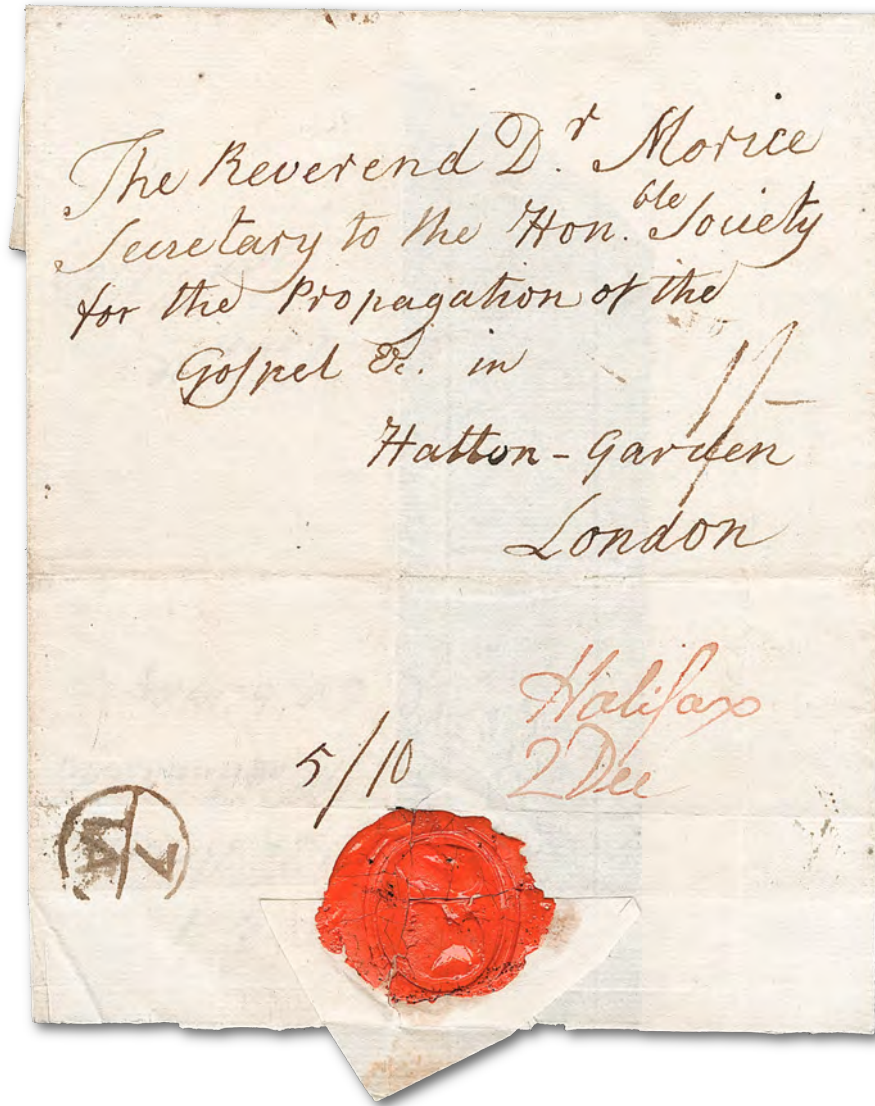 The Reverend D.r Morice
Secretary to the Hon.ble Society
for the Propagation of the
Gospel &c. in
1/-
Hatton - Garden
London
Halifax
2 Dec
5/10
7
IA